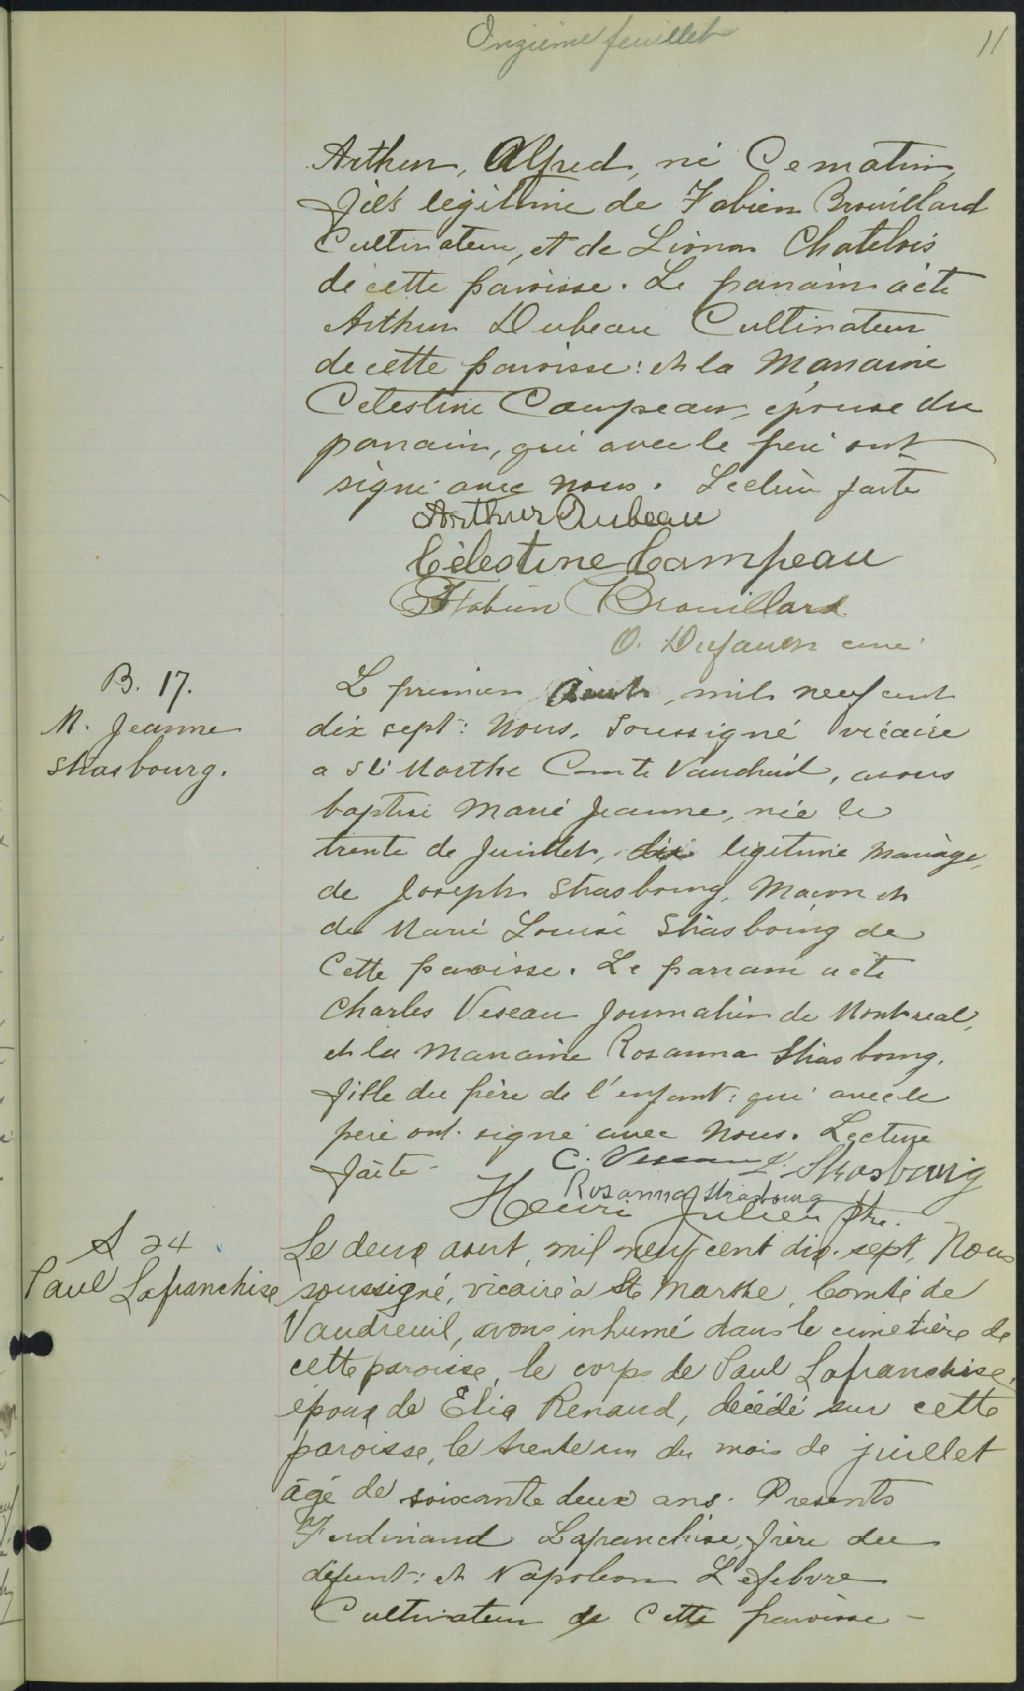 Onzième feuillet
11
Arthur, Alfred, né Ce matin,
fils légitime de Fabien Brouillard
Cultivateur, et de Chatelois
de cette paroisse. Le parrain a été
Arthur Dubeau Cultivateur
de cette paroisse : et la Marraine
Celestine Campeau, épouse du
parrain, qui avec le père ont
signé avec nous. Lecture faite
Arthur Dubeau
Célestine Campeau
Fabien Brouillard
O. curé
B. 17.
M. Jeanne
Strasbourg.
Le premier Aout, mil neuf cent
dix sept : Nous, soussigné vicaire
a Ste Marthe Comté Vaudreuil, avons
baptisé Marie Jeanne, née le
trente de Juillet, legitime mariage,
de Joseph Strasbourg, Maçon et
de Marie Louise Strasbourg de
Cette paroisse. Le parrain a été
Charles Viseau Journalier de Montreal,
et la Marraine Rosanna Strasbourg,
fille du père de l'enfant : qui avec le
père ont signé avec Nous. Lecture
faite -
C. Viseau J. Strasbourg
Rosanna Strasbourg
Henri Julien Ptre.
S 24
Paul Lafranchise
Le deux aout, mil neuf cent dix-sept, Nous
soussigné, vicaire à Ste Marthe, Comté de
Vaudreuil, avons inhumé dans le cimetière de
cette paroisse, le corps de Paul Lafranchise,
époux de Elia Renaud, décédé sur cette
paroisse, le trente un du mois de juillet
âgé de soixante deux ans. Presents
Ferdinand Lafranchise, frère du
défunt : et Napoleon Lefebvre
Cultivateur de Cette paroisse -